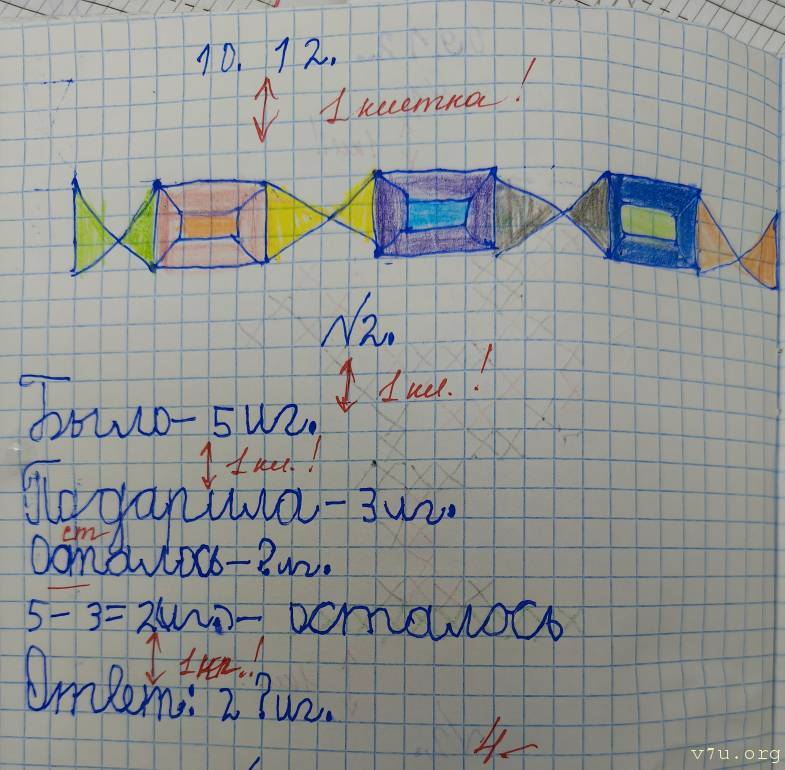 10. 12.
1 клетка!
№2.
1 кл.!
Было – 5 иг.
1 кл.!
Подарила – 3 иг.
ст
Осталось – ? иг.
5 – 3 = 2 (иг.) – осталось
1 кл.!
Ответ: 2 ? иг.
4–
v7u.org